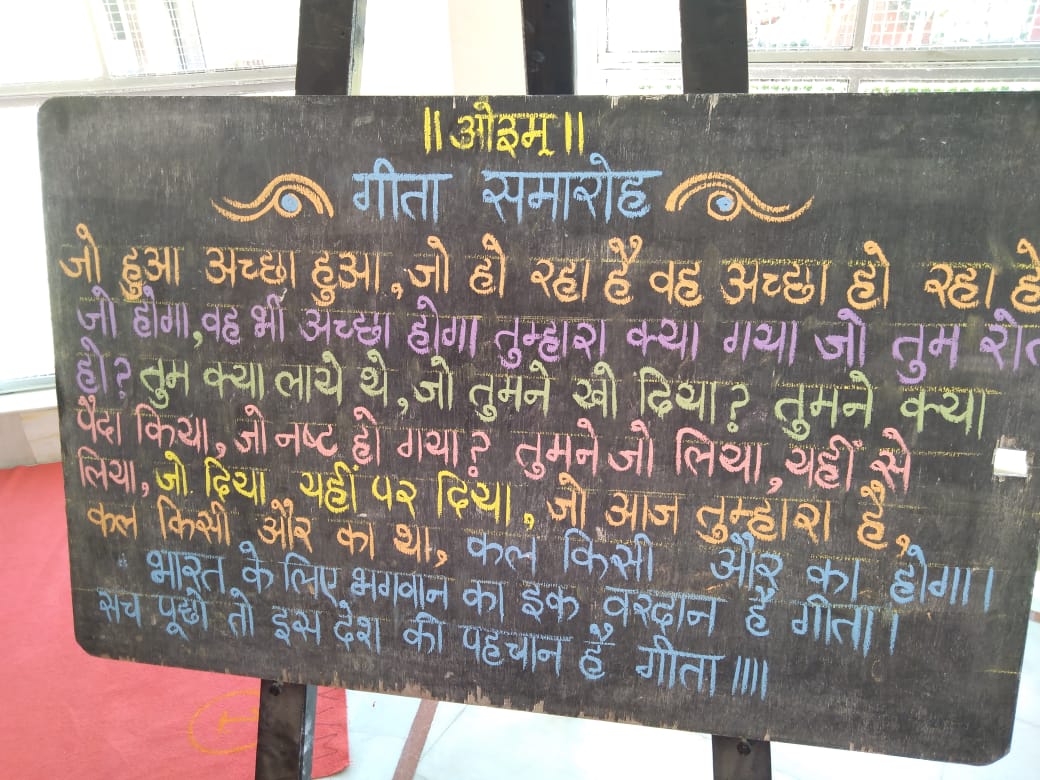 ॥ ओ३म् ॥
गीता समारोह
जो हुआ अच्छा हुआ, जो हो रहा है वह अच्छा हो रहा है
जो होगा, वह भी अच्छा होगा तुम्हारा क्या गया जो तुम रोते
हो? तुम क्या लाये थे, जो तुमने खो दिया? तुमने क्या
पैदा किया, जो नष्ट हो गया? तुमने जो लिया, यहीं से
लिया, जो दिया यहीं पर दिया, जो आज तुम्हारा है,
कल किसी और का था, कल किसी और का होगा।
भारत के लिए भगवान का इक वरदान है गीता।
सच पूछो तो इस देश की पहचान है गीता ||||